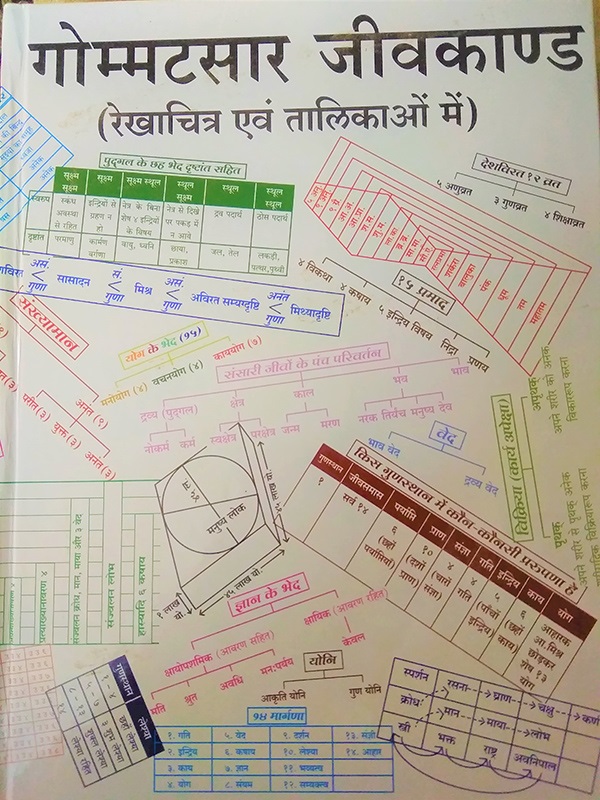 गोम्मटसार जीवकाण्ड
(रेखाचित्र एवं तालिकाओं में)
पुद्गल के छह भेद दृष्टांत सहित
सूक्ष्म सूक्ष्म
सूक्ष्म
सूक्ष्म स्थूल
स्थूल सूक्ष्म
स्थूल
स्थूल स्थूल
स्वरूप
स्कंध अवस्था से रहित
इन्द्रियों से ग्रहण न हो
नेत्र के बिना शेष ४ इन्द्रियों के विषय
नेत्र से दिखे पर पकड़ में न आवे
द्रव पदार्थ
ठोस पदार्थ
दृष्टांत
परमाणु
कार्मण वर्गणा
वायु, ध्वनि
छाया, प्रकाश
जल, तेल
लकड़ी, पत्थर,पृथ्वी
देशविरत १२ व्रत
५ अणुव्रत
३ गुणव्रत
४ शिक्षाव्रत
शर्करा
बालुका
पंक
धूम
तम
महातम
असं. गुणा
सासादन
सं. गुणा
मिश्र
असं. गुणा
अविरत सम्यग्दृष्टि
अनंत गुणा
मिथ्यादृष्टि
१५ प्रमाद
४ विकथा
४ कषाय
५ इन्द्रिय विषय
निद्रा
प्रणय
संख्यामान
अनंत (९)
परीत (३)
युक्त (३)
अनंत (३)
योग के भेद (१५)
मनोयोग (४)
वचनयोग (४)
काययोग (७)
संसारी जीवों के पंच परिवर्तन
द्रव्य (पुद्गल)
क्षेत्र
काल
भव
भाव
नोकर्म
कर्म
स्वक्षेत्र
परक्षेत्र
जन्म
मरण
नरक
तिर्यंच
मनुष्य
देव
वेद
भाव वेद
द्रव्य वेद
विक्रिया (कार्य अपेक्षा)
अपृथक्
अपने शरीर को अनेक विकाररूप करना
पृथक्
अपने शरीर से पृथक् अनेक
मनुष्य लोक
१ लाख यो.
४५ लाख यो.
किस गुणस्थान में कौन-कौनसी प्ररुपणा है
गुणस्थान
जीवसमास
पर्याप्ति
प्राण
संज्ञा
गति
इन्द्रिय
काय
योग
१
सर्व १४
६ (छहों पर्याप्तियाँ)
१० (दशों प्राण)
४ (चारों संज्ञा)
४
५ (पाँचों इन्द्रिय)
६ (छहों काय)
आहारक आ.मिश्र छोड़कर शेष १३ योग
संज्वलन क्रोध, मान, माया और ३ वेद
संज्वलन लोभ
हास्यादि ६ कषाय
ज्ञान के भेद
क्षायोपशमिक (आवरण सहित)
क्षायिक (आवरण रहित)
मति
श्रुत
अवधि
मनःपर्यय
केवल
योनि
आकृति योनि
गुण योनि
गुणस्थान
लेश्या
१ - ४
छहों लेश्या
५ - ७
३ शुभ लेश्या
८ - १३
शुक्ल लेश्या
१४
लेश्या रहित
१४ मार्गणा
१. गति
५. वेद
९. दर्शन
१३. संज्ञी
२. इन्द्रिय
६. कषाय
१०. लेश्या
१४. आहार
३. काय
७. ज्ञान
११. भव्यत्व
४. योग
८. संयम
१२. सम्यक्त्व
स्पर्शन
रसना
घ्राण
चक्षु
कर्ण
क्रोध
मान
माया
लोभ
स्त्री
भक्त
राष्ट्र
अवनिपाल